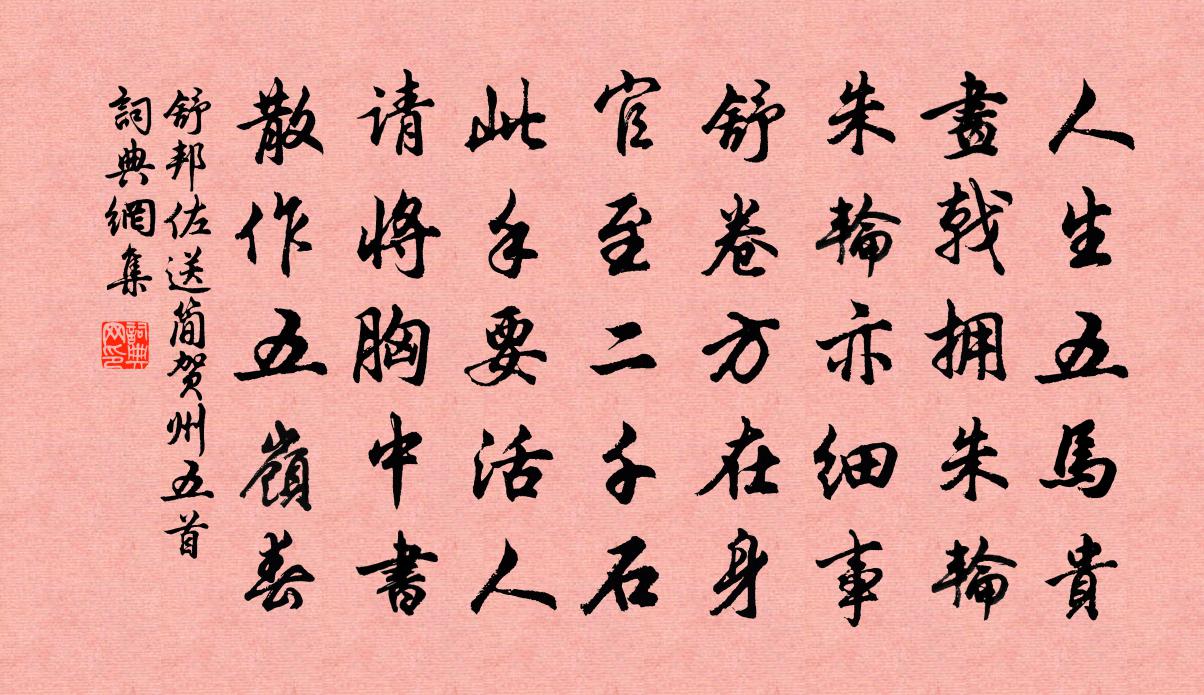 人生五馬貴
畫戟拥朱輪
朱輪亦细事
舒卷方在身
官至二千石
此手要活人
请將胸中書
散作五嶺春
舒邦佐送简贺州五首
詞典網集
詞典网印